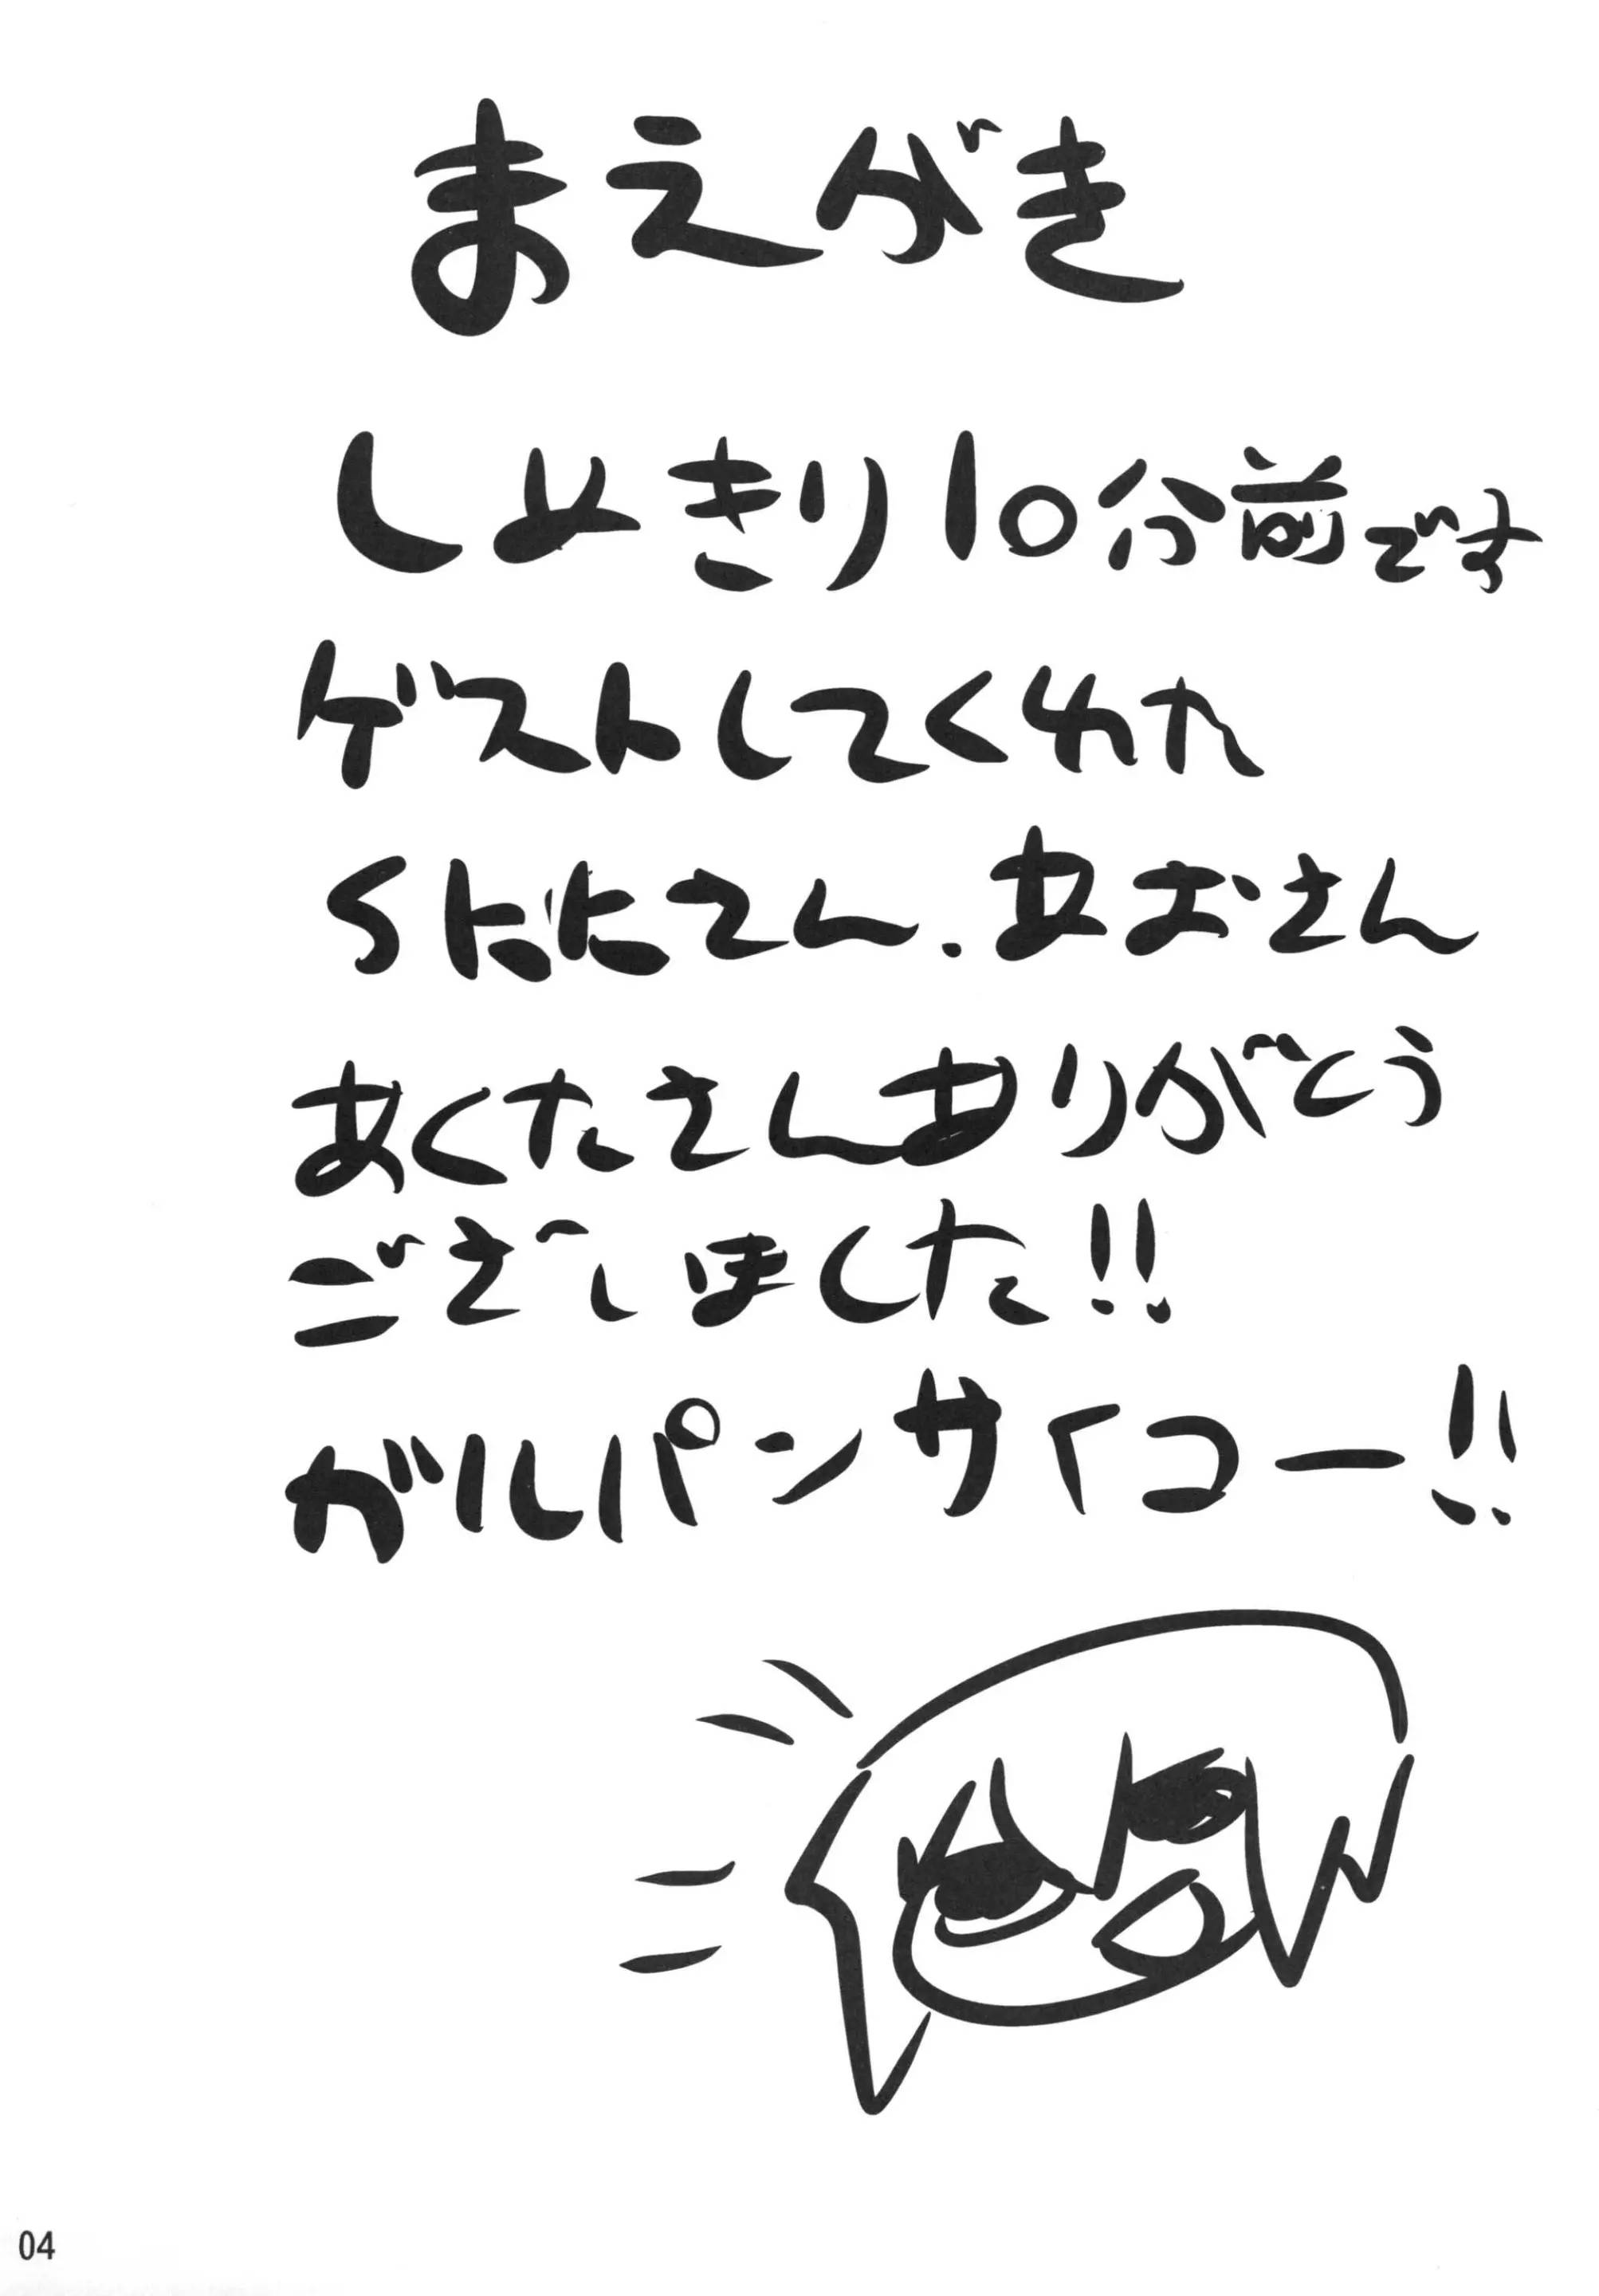 まえがき
しめきり10分前です
ゲストしてくれた
Skkさん.あおさん
あくたさんありがとう
ございました!!
ガルパンサイコー!!
04